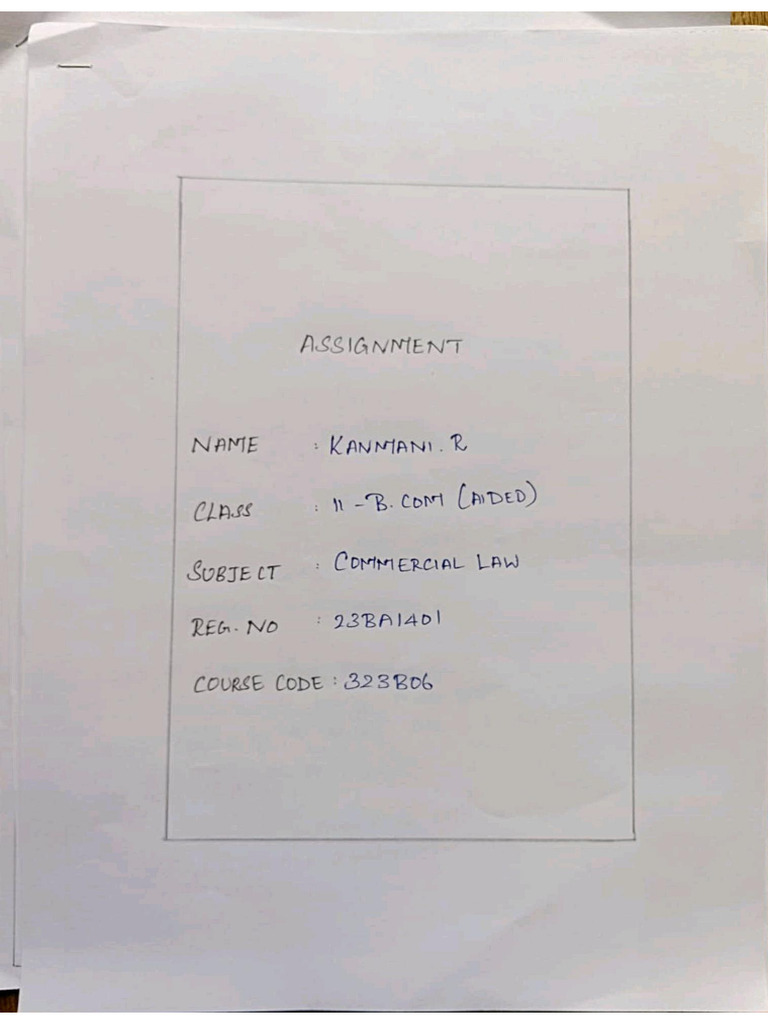 ASSIGNMENT
NAME : KANMANI. R
CLASS : II - B. COM (AIDED)
SUBJECT : COMMERCIAL LAW
REG. NO : 23BA1401
COURSE CODE : 323B06